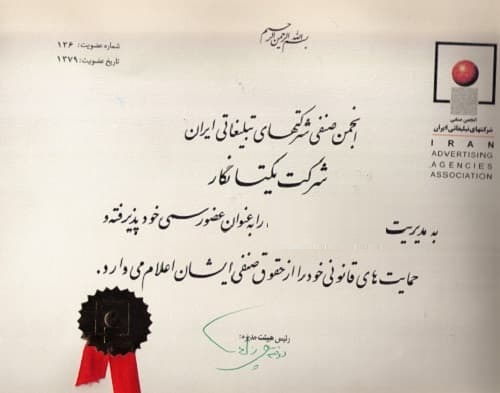 بسم الله الرحمن الرحیم
شماره عضویت: ۱۳۶
تاریخ عضویت: ۱۳۷۹
انجمن صنفی
شرکتهای تبلیغاتی ایران
IRAN
ADVERTISING
AGENCIES
ASSOCIATION
انجمن صنفی شرکتهای تبلیغاتی ایران
شرکت یکتا نگار
به مدیریت را به عنوان عضو رسمی خود پذیرفته و
حمایت های قانونی خود را از حقوق صنفی ایشان اعلام می دارد.
رئیس هیئت مدیره: